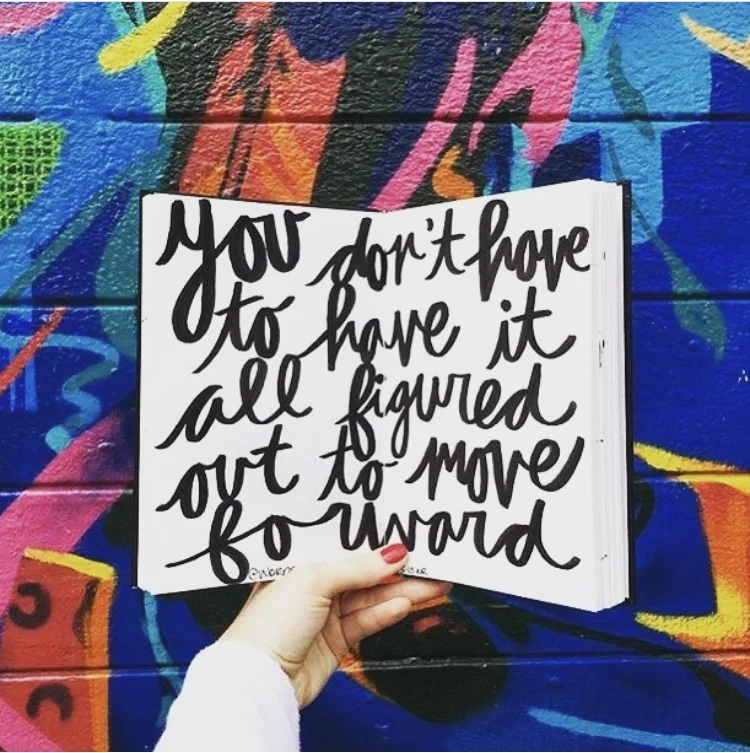 you don't have
to have it
all figured
out to move
forward